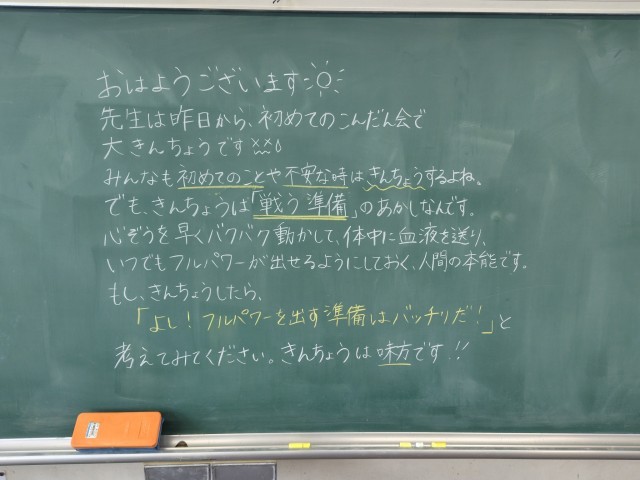 おはようございます
先生は昨日から、初めてのこんだん会で
大きんちょうです
みんなも初めてのことや不安な時はきんちょうするよね。
でも、きんちょうは「戦う準備」のあかしなんです。
心ぞうを早くバクバク動かして、体中に血液を送り、
いつでもフルパワーが出せるようにしておく、人間の本能です。
もし、きんちょうしたら、
「よし!フルパワーを出す準備はバッチリだ!」と
考えてみてください。きんちょうは味方です!!